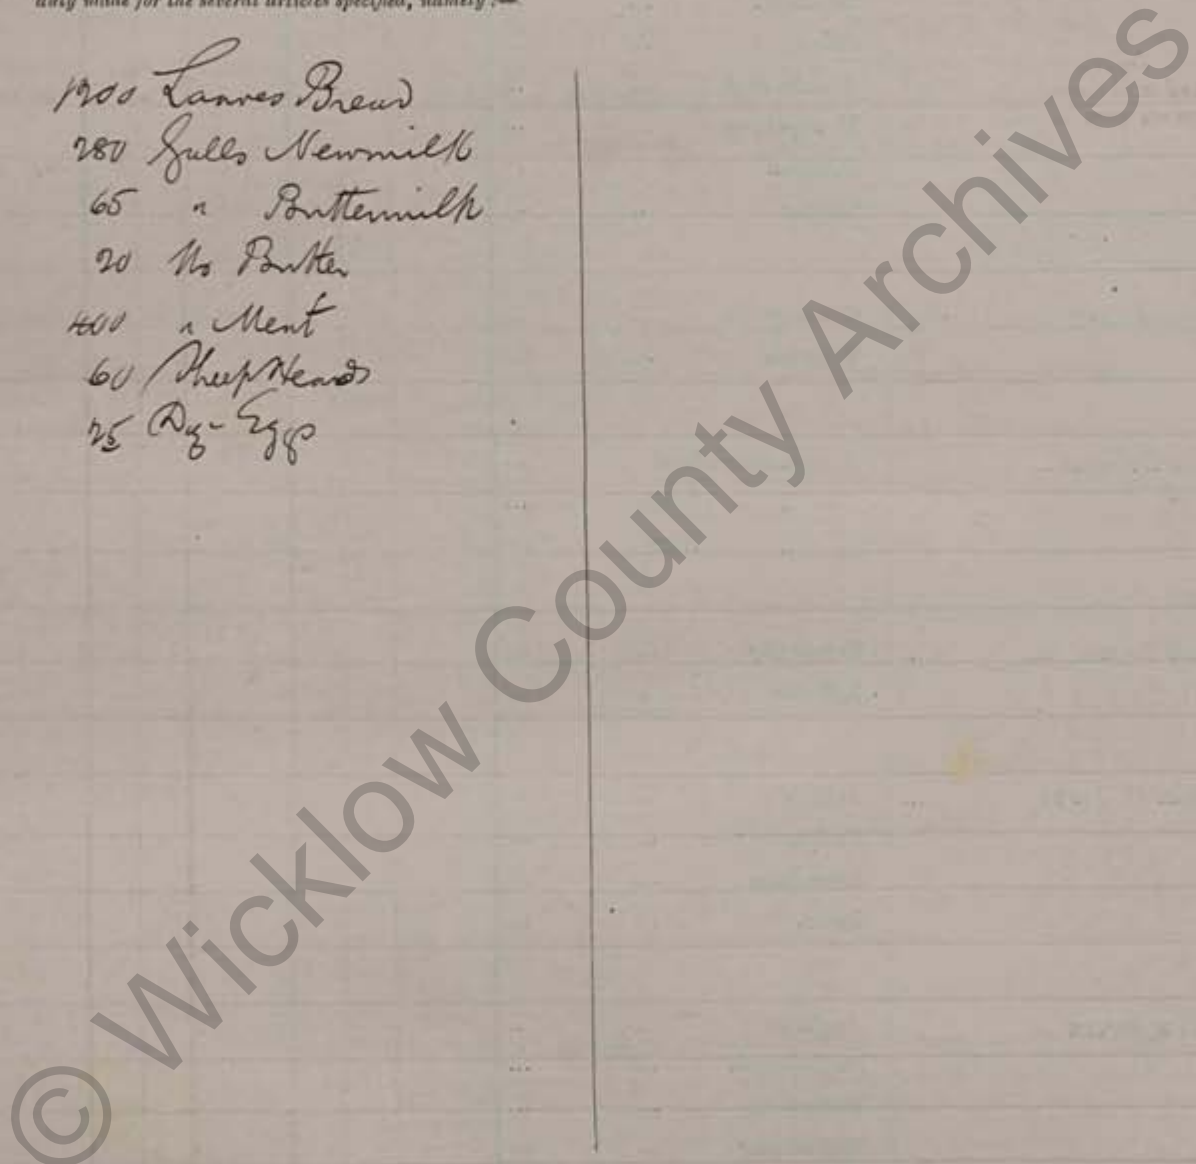 duly made for the several articles specified, namely:—
1200 Loaves Bread
280 Galls Newmilk
65 " Buttermilk
20 lbs Butter
400 " Meat
60 Sheep Heads
25 Doz- Eggs
© Wicklow County Archives